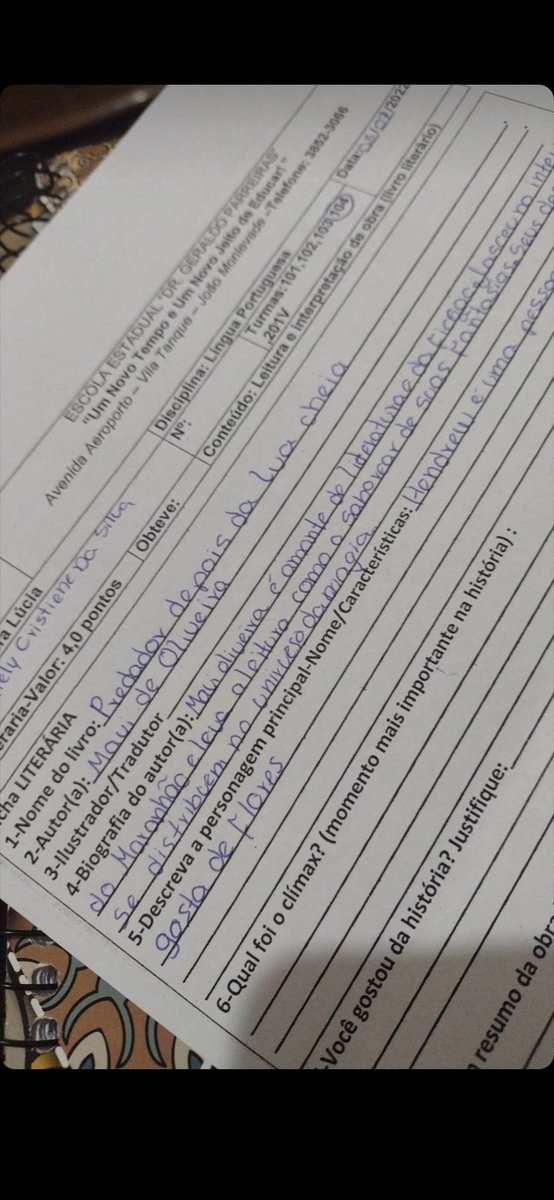 ESCOLA ESTADUAL "DR. GERALDO PARREIRAS"
"Um Novo Tempo e Um Novo Jeito de Educar! "
Avenida Aeroporto – Vila Tanque – João Monlevade –Telefone: 3852-3066
a Lúcia
Disciplina: Língua Portuguesa
Nº:
Turmas:101,102,103,104
,201V
Data: /2022
ely Cristiene Da Silva
eraria-Valor: 4,0 pontos
Obteve:
Conteúdo: Leitura e interpretação de obra (livro literário)
cha LITERÁRIA
1-Nome do livro: Predador depois da lua cheia
2-Autor(a): Mavi de Oliveira
3-Ilustrador/Tradutor
4-Biografia do autor(a): Mavi oliveira é amante de literatura e da Ficção nasceu no inte
do Maranhão e leva a leitura como o saborear de suas Fantasias. Seus de
Se distribuem no universo da magia.
5-Descreva a personagem principal-Nome/Características: Hendrew é uma pessoa
gosta de Flores
6-Qual foi o clímax? (momento mais importante na história) :
-Você gostou da história? Justifique:
resumo da obra